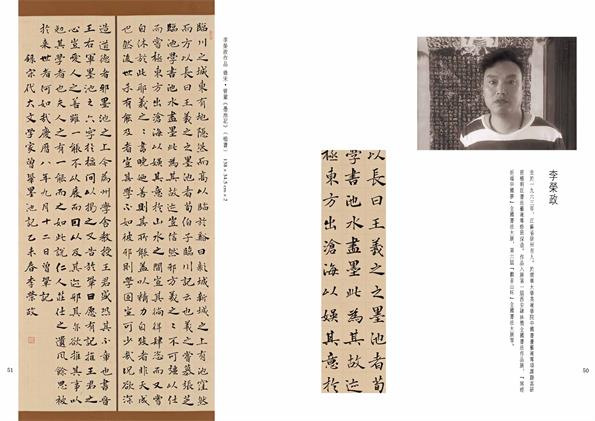 李榮政
生於一九六三年，江蘇省徐州市人。
全國書法作品展，「冕經
祈福中國夢」全國書法大展、第六屆「觀音山杯」全國書法大展等。
50
以長曰王羲之之墨池者荀
學書池水盡墨此為其故迹
極東方出滄海以娛其意於
李榮政作品 錄宋・曾鞏《墨池記》（楷書） 138×34.5cm×2
臨川之城東有地隱然而高以臨於谿曰新城新城之上有池窪然
而方以長曰王羲之之墨池者荀伯子臨川記云也羲之嘗慕張芝
臨池學書池水盡墨此為其故迹豈信然邪方羲之之不可強以仕
而嘗極東方出滄海以娛其意於山水之間豈其徜徉肆恣而又嘗
自休於此邪羲之之書晚乃善則其所能蓋以精力自致者非天成
也然後世未有能及者豈其學不如彼邪則學固豈可少哉況欲深
造道德者邪墨池之上今為州學舍教授王君盛恐其不章也書晉
王右軍墨池之六字於楹間以揭之又告於鞏曰願有記推王君之
心豈愛人之善雖一能不以廢而因以及其迹邪其亦欲推其事以
勉其學者也夫人之有一能而之如此況仁人莊士之遺風餘思被
於來世者何如哉慶曆八年九月十二日曾鞏記
錄宋代大文學家曾鞏墨池記乙未春李榮政
51